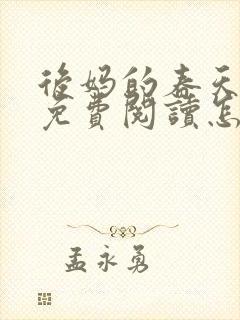 後妈的春天
免費閱讀怎
孟永勇